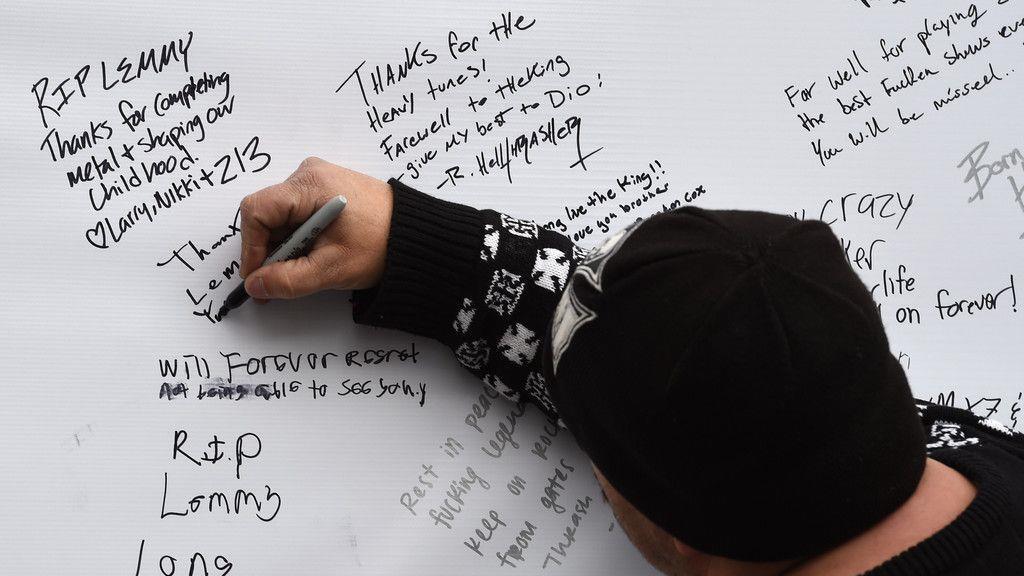 RIP LEMMY
Thanks for completing
metal + shaping our
Childhood.
♡Larry, Nikki + 213
THANKS for the
Heavy tunes!
Farewell to the King
- give my best to Dio!
-R. Hell/THRASHER
long live the King!!
love you brother
cox
For well for playing
the best Fucken shows eve
You will be missed..
Born
crazy
ker
rlife
on forever!
Thank
Lem
You
Will Forever Regret
Not being able to see you.
R.I.P
Lemmy
Long
Rest in peac
fucking legen
keep on Rock
from gates
Thrash